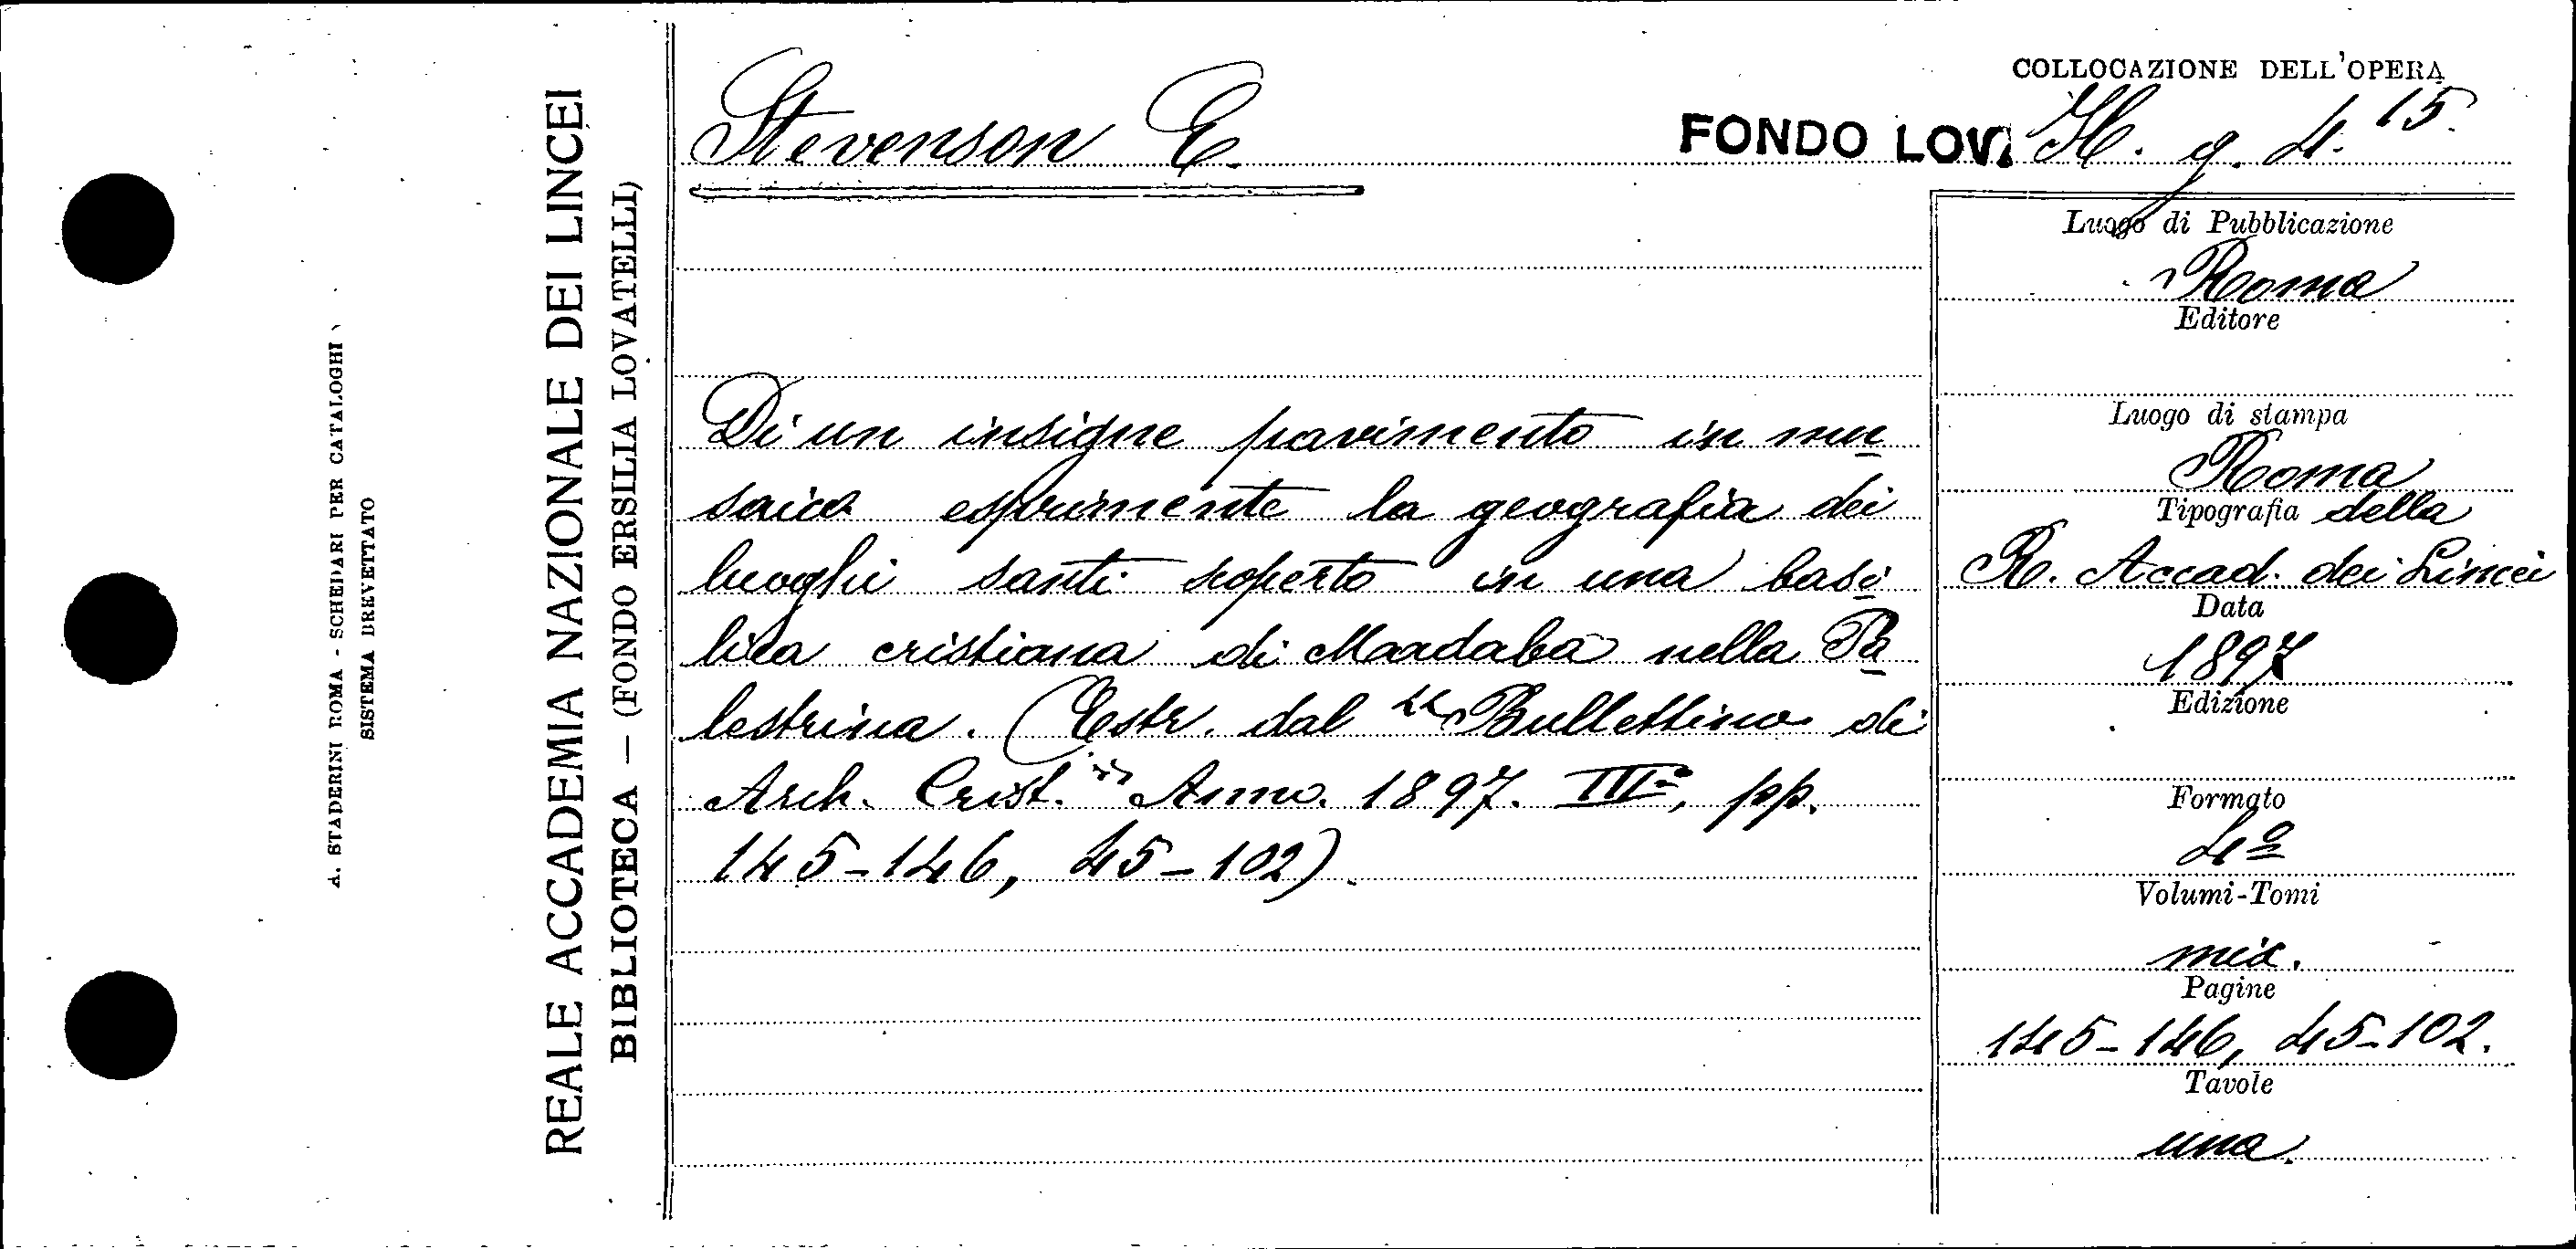 A. STADERINI ROMA - SCHEDARI PER CATALOGHI
SISTEMA BREVETTATO
REALE ACCADEMIA NAZIONALE DEI LINCEI
BIBLIOTECA — (FONDO ERSILIA LOVATELLI)
Stevenson E.
COLLOCAZIONE DELL'OPERA
FONDO LOV. H. g. 4. 15.
Di un insigne pavimento in mu
saico esprimente la geografia dei
luoghi santi scoperto in una basi
lica cristiana di Maadaba nella Pa
lestrina. (Estr. dal "Bullettino di
Arch. Crist." Anno. 1897. III=, pp.
145-146, 45-102).
Luogo di Pubblicazione
Roma
Editore
Luogo di stampa
Roma
Tipografia della
R. Accad. dei Lincei
Data
1897
Edizione
Formato
4º
Volumi-Tomi
mis.
Pagine
145-146, 45-102.
Tavole
una.